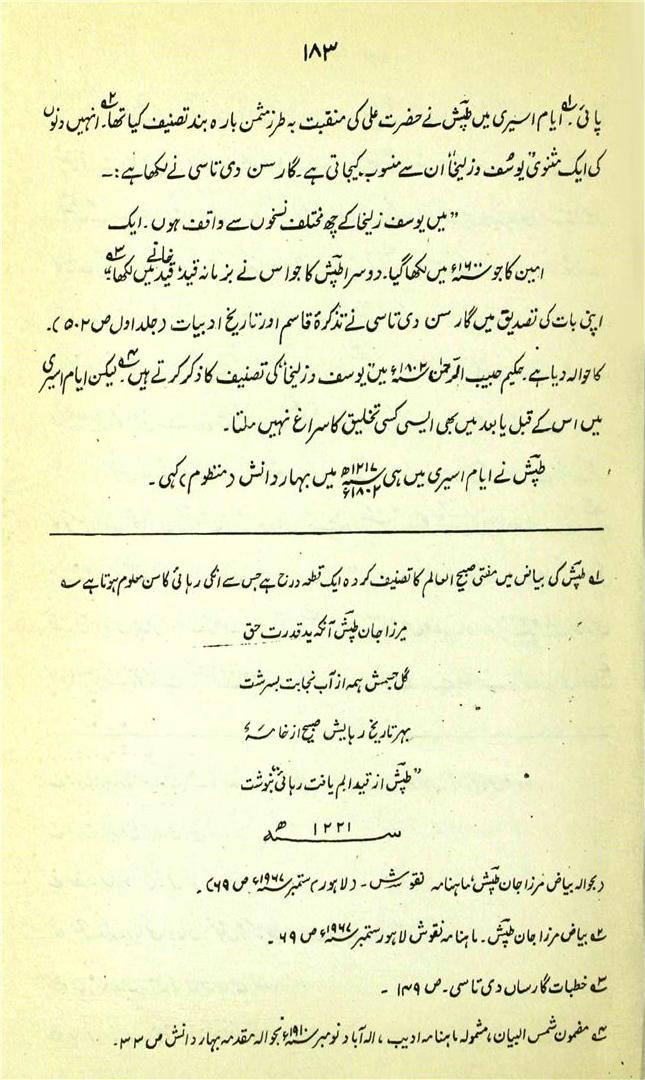 ۱۸۳
پائی۔۱؎ ایام اسیری میں طپشؔ نے حضرت علی کی منقبت بہ طرز مثمن بارہ بند تصنیف کیا تھا۔۲؎ انہیں دنوں
کی ایک مثنوی یوسف و زلیخا ان سے منسوب کیجاتی ہے۔ گارسن دی تاسی نے لکھا ہے :۔
”میں یوسف زلیخا کے چھ مختلف نسخوں سے واقف ہوں۔ ایک
امین کا جو ۱۶۰۰ء میں لکھا گیا۔ دوسرا طپشؔ کا جو اس نے بزمانہ قید، قید خانے میں لکھا۔“۳؎
اپنی بات کی تصدیق میں گارسن دی تاسی نے تذکرۂ قاسم اور تاریخ ادبیات (جلد اول ص ۵۰۲)۔
کا حوالہ دیا ہے۔ حکیم حبیب الرحمٰن ۱۸۰۲ء میں یوسف و زلیخا کی تصنیف کا ذکر کرتے ہیں۔۴؎ لیکن ایام اسیری
میں اس کے قبل یا بعد میں بھی ایسی کسی تخلیق کا سراغ نہیں ملتا۔
طپشؔ نے ایام اسیری میں ہی ۱۲۱۷ھ ۱۸۰۲ء میں بہار دانش (منظوم) کہی۔
۱؎ طپشؔ کی بیاض میں مفتی صبیح العالم کا تصنیف کردہ ایک قطعہ درج ہے جس سے انکی رہائی کا سن معلوم ہوتا ہے ؎
میرزا جان طپشؔ آنکہ ید قدرت حق
گل جسمش ہمہ از آب نجابت بسرشت
بہر تاریخ رہایش صبیح از خامۂ
”طپشؔ از قید الم یافت رہائی“ بنوشت
۱۲۲۱ ھ
(بحوالہ بیاض مرزا جان طپشؔ، ماہنامہ نقوش۔ (لاہور) ستمبر ۱۹۶۷ء ص ۶۹)۔
۲؎ بیاض مرزا جان طپشؔ۔ ماہنامہ نقوش لاہور ستمبر ۱۹۶۷ء ص ۶۹۔
۳؎ خطبات گارساں دی تاسی۔ ص ۱۴۹ ۔
۴؎ مضمون شمس البیان، مشمولہ ماہنامہ ادیب، الہ آباد نومبر ۱۹۱۰ء بحوالہ مقدمہ بہار دانش ص ۳۳۔